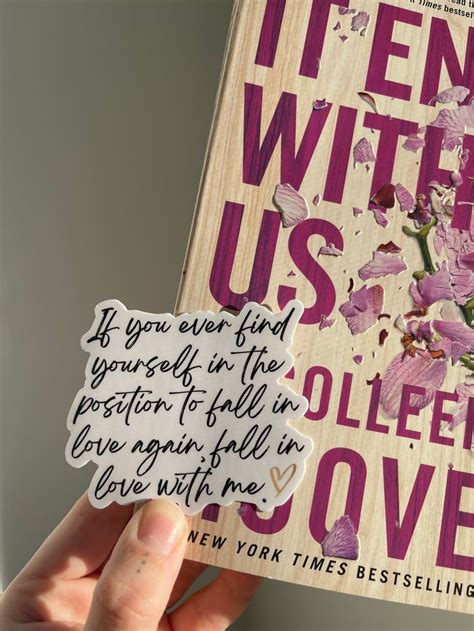 Times bestsell
IT EN
WITH
US
COLLEE
HOOVE
NEW YORK TIMES BESTSELLING
If you ever find
yourself in the
position to fall in
love again, fall in
love with me.